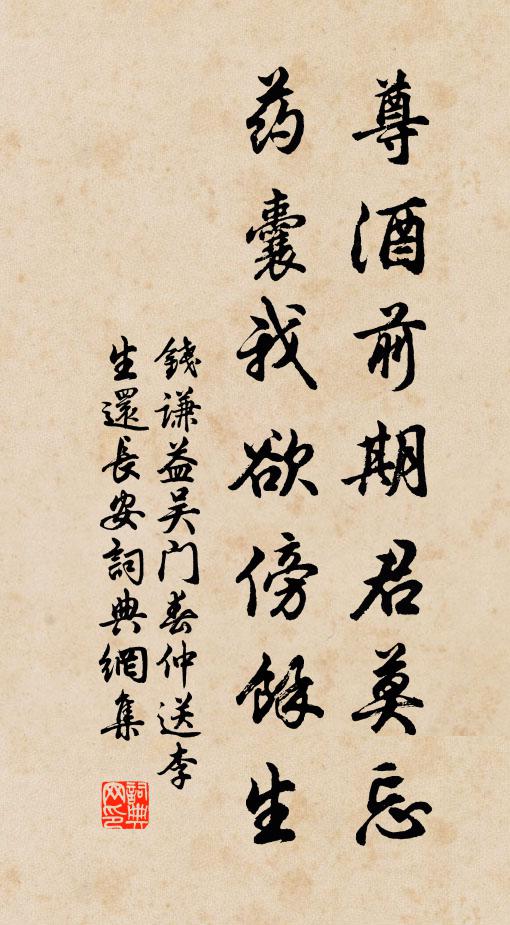 尊酒前期君莫忘
药囊我欲傍餘生
錢谦益吴门春仲送李
生還長安詞典網集
詞典
网印